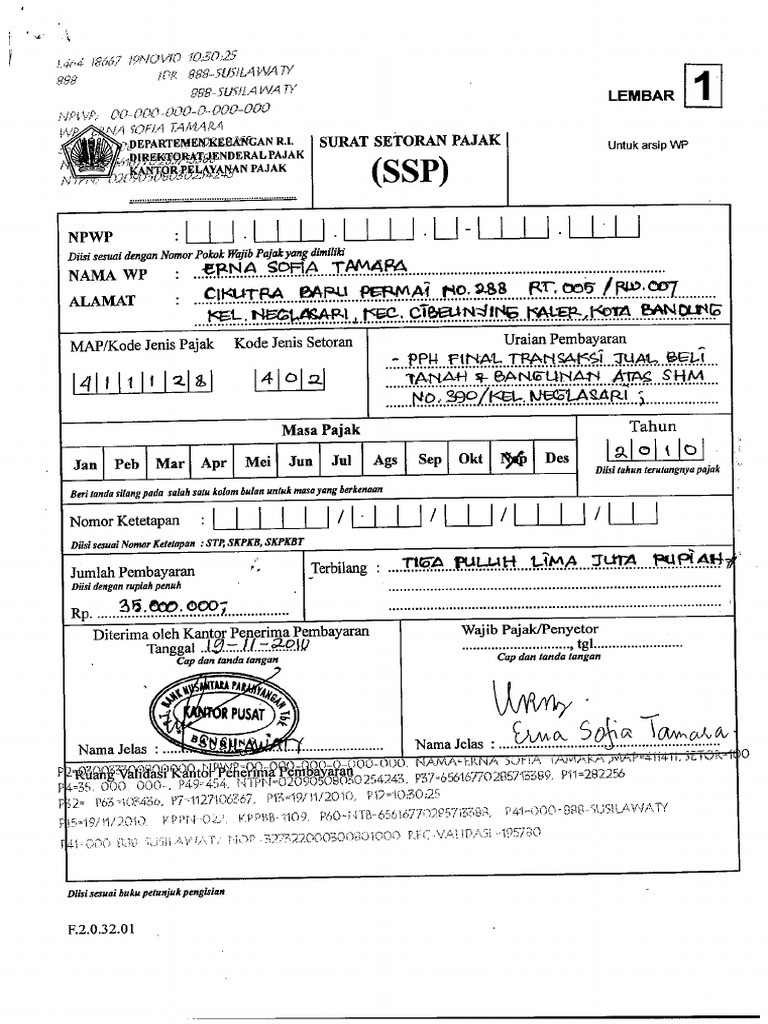 18667 19NOV10 10:30:25
888 IDR 888-SUSILAWATY
888-SUSILAWATY
NPWP: 00-000-000-0-000-000
WP: ERNA SOFIA TAMARA
LEMBAR 1
Untuk arsip WP
DEPARTEMEN KEUANGAN R.I.
DIREKTORAT JENDERAL PAJAK
KANTOR PELAYANAN PAJAK
NTPN: 02090508030254243
SURAT SETORAN PAJAK
(SSP)
NPWP :
Diisi sesuai dengan Nomor Pokok Wajib Pajak yang dimiliki
NAMA WP : ERNA SOFIA TAMARA
ALAMAT : CIKUTRA BARU PERMAI NO.288 RT.005/RW.007
KEL. NEGLASARI, KEC. CIBEUNYING KALER, KOTA BANDUNG
MAP/Kode Jenis Pajak Kode Jenis Setoran
411128 402
Uraian Pembayaran
- PPH FINAL TRANSAKSI JUAL BELI
TANAH & BANGUNAN ATAS SHM
NO.390/KEL.NEGLASARI;
Masa Pajak
Jan Peb Mar Apr Mei Jun Jul Ags Sep Okt Nop Des
Beri tanda silang pada salah satu kolom bulan untuk masa yang berkenaan
Tahun
2010
Diisi tahun terutangnya pajak
Nomor Ketetapan : / / / /
Diisi sesuai Nomor Ketetapan : STP, SKPKB, SKPKBT
Jumlah Pembayaran
Diisi dengan rupiah penuh
Rp. 35.000.000,-
Terbilang : TIGA PULUH LIMA JUTA RUPIAH
Diterima oleh Kantor Penerima Pembayaran
Tanggal 19-11-2010
Cap dan tanda tangan
P.T. BANK NUSANTARA PARAHYANGAN Tbk
KANTOR PUSAT
BANDUNG
Nama Jelas :
Wajib Pajak/Penyetor
, tgl.
Cap dan tanda tangan
Nama Jelas : Erna Sofia Tamara
Ruang Validasi Kantor Penerima Pembayaran
NPWP=00-000-000-0-000-000, NAMA=ERNA SOFIA TAMARA, MAP=411411, SETOR=100
P4=35. 000. 000-, P49=454, NTPN=02090508030254243, P37=65616770285713389, P11=282256
P32= P63=103436, P7=1127106367, P13=19/11/2010, P12=10:30:25
P15=19/11/2010, KPPN=022, KPPBB=1109, P60=NTB=6561677028571 3388, P41=000-888-SUSILAWATY
P41=000 888 SUSILAWATY NOP=327322000300801000 REC-VALIDASI=195780
Diisi sesuai buku petunjuk pengisian
F.2.0.32.01